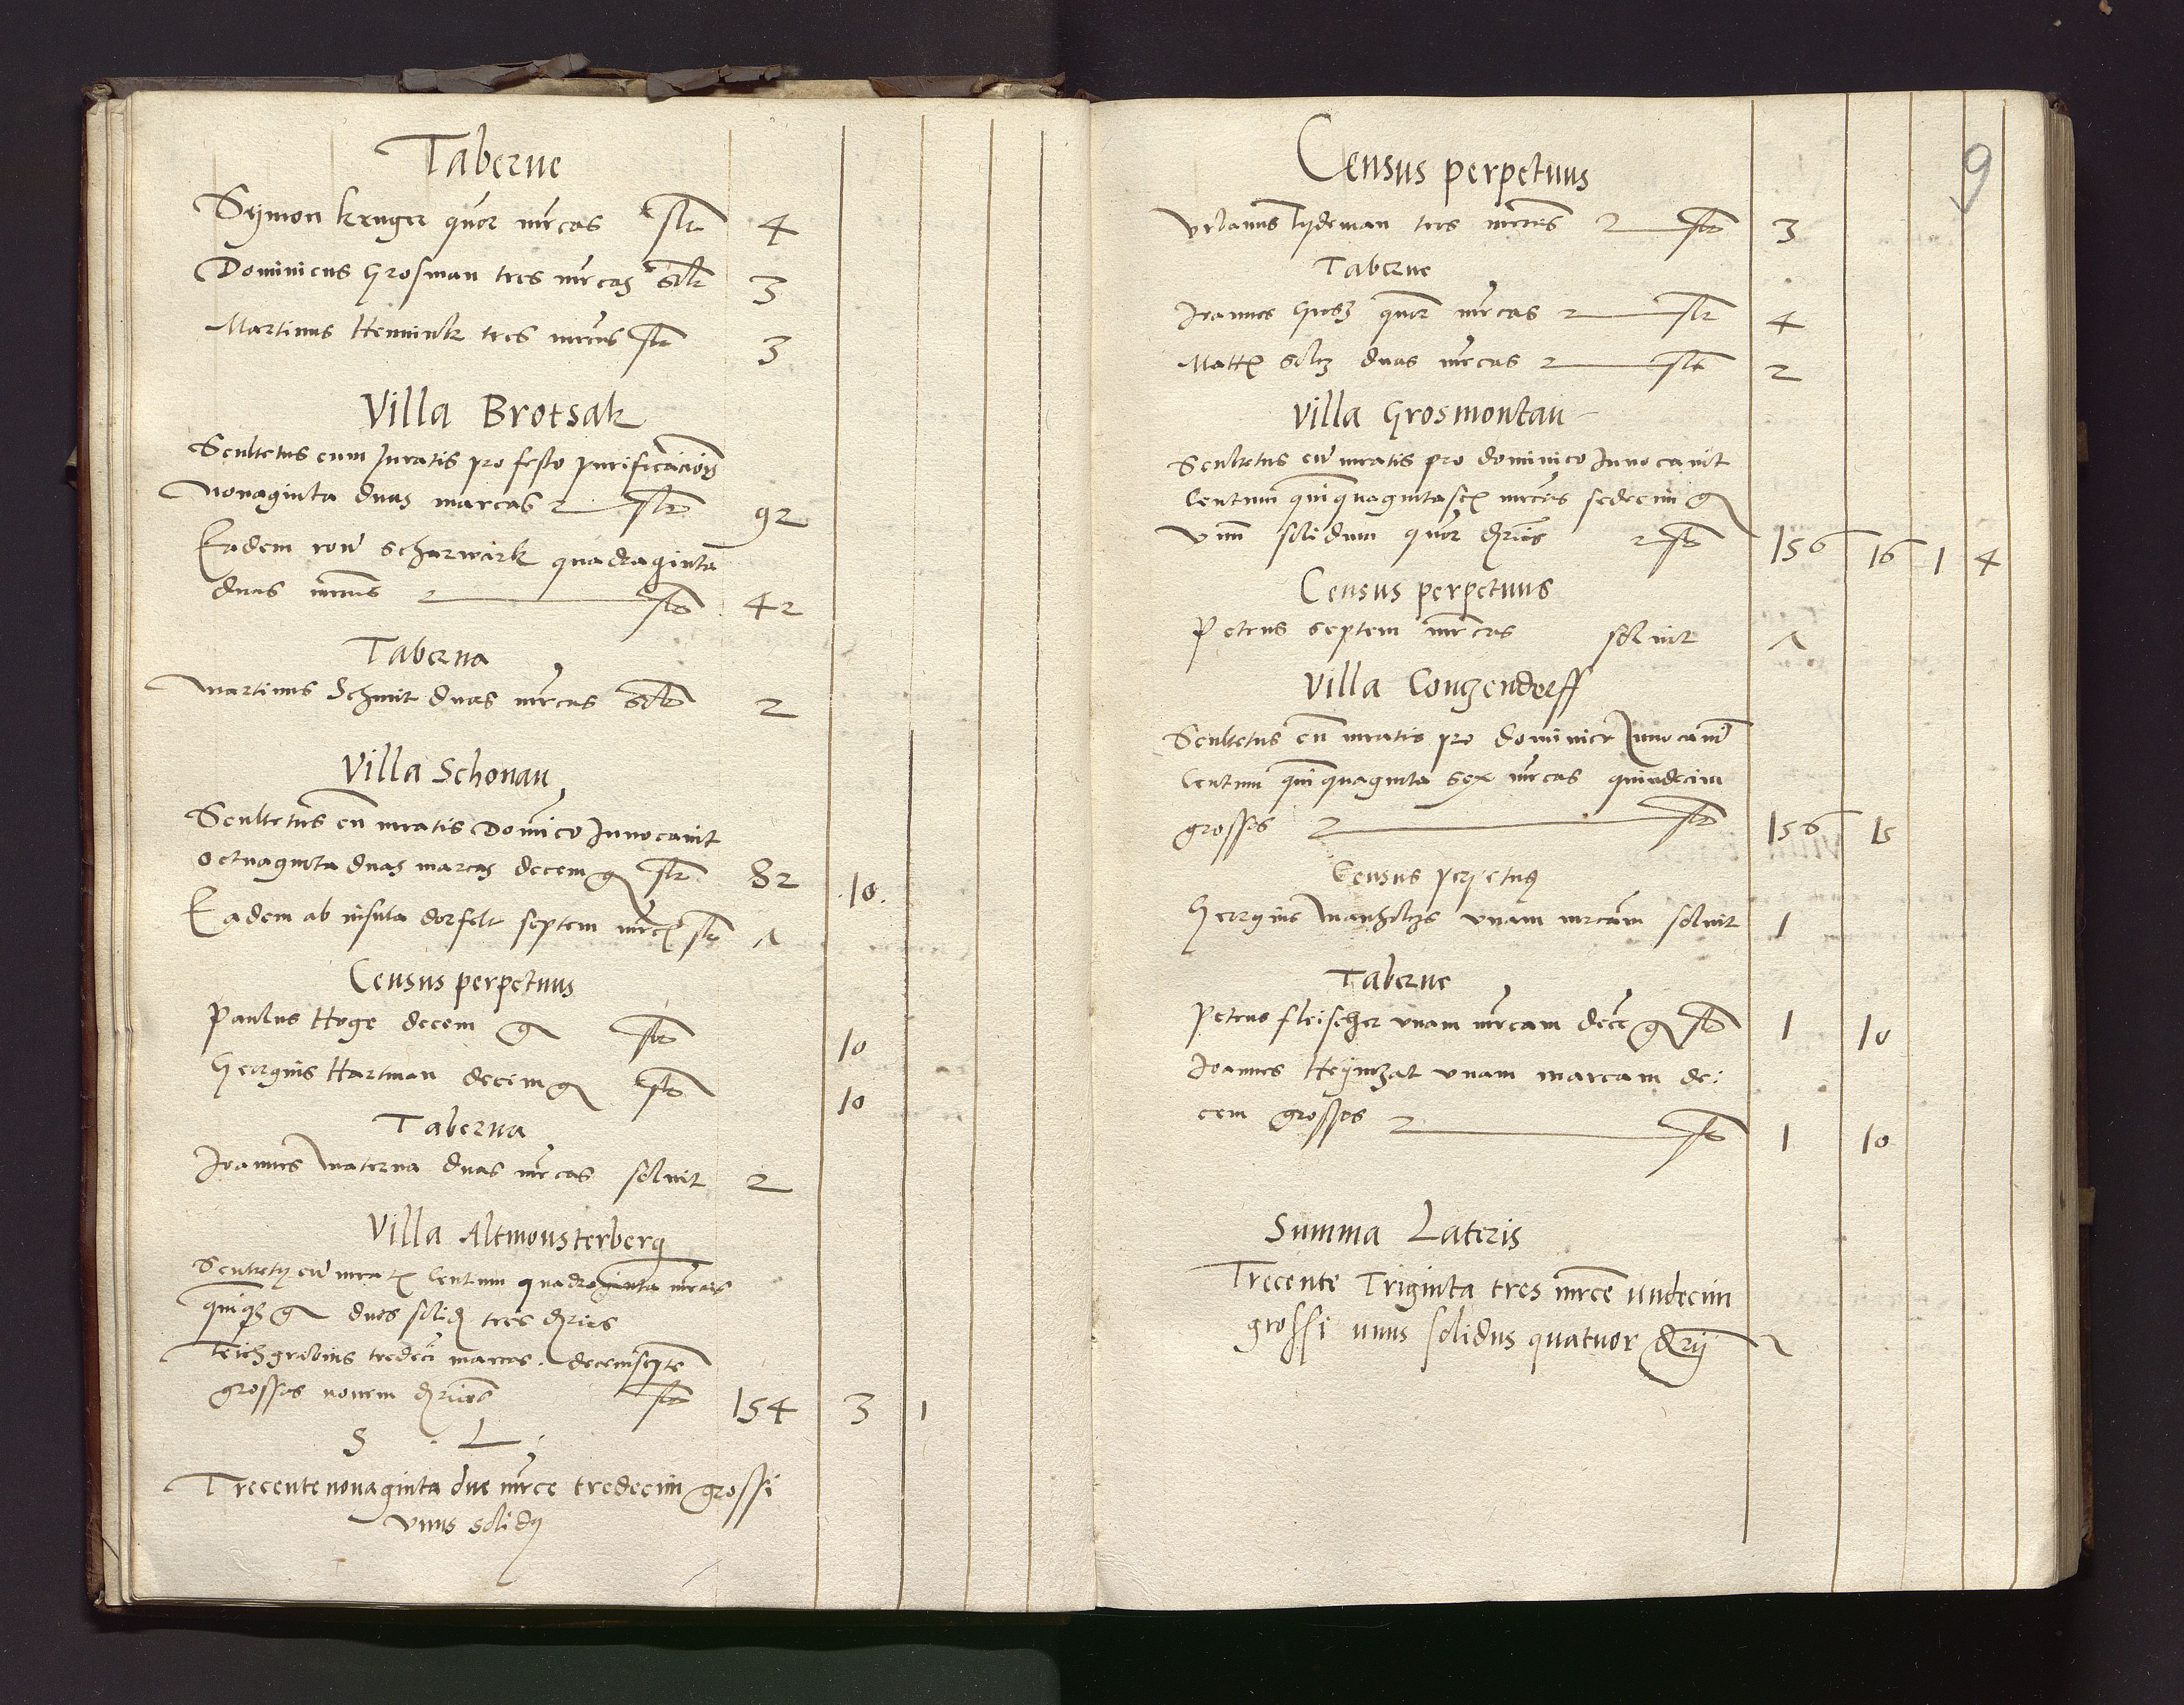 Taberne
Sÿmon kruger quor mrcas slt 4
Dominicus Grosman tres mrcas solt 3
Martinus Hennink tres mrcas slt 3
Villa Brotsak
Scultetus cum Juratis pro festo purificacionis
Nonaginta duas marcas slt 92
Eadem racõe scharwark quadraginta
duas mrcas slt 42
Taberna
Martinus Schmit duas mrcas solt 2
Villa Schonau
Scultetus cũ iuratis Dominico Inuocauit
octuaginta duas marcas decem g slt 82 10
Eadem ab insula dorfelt septem mrcas slt 7
Census perpetuus
Paulus Hoge decem g slt 10
Georgius Hartman decem g slt 10
Taberna
Joannes Materna duas mrcas soluit 2
Villa Altmonsterberg
Scultetus cũ iuratis Centum quadraginta mrcas
quinque g duos solid tres drios
Teichgrabius tredeci marcas decem septe
grossos nouem drios slt 154 3 1
S L
Trecente nonaginta due mrce tredecim grossi
vnus solidus
9
Census perpetuus
Vrbanus Tydeman tres mrcas slt 3
Taberne
Joannes quor mrcas slt 4
Matts Soltz duas mrcas slt 2
Villa Grosmontau
Scultetus cũ iuratis pro dominico Inuocauit
Centum quinquaginta sex mrcas sedecim g
vnũ solidum quor drios slt 156 16 1 4
Census perpetuus
Petrus septem mrcas soluit 7
Villa Conczendorff
Scultetus cũ iuratis pro dominico Inuocauit
Centum quinquaginta sex mrcas quindecim
grossos slt 156 15
Census perpetuus
Georgius Manholtz vnam mrcam soluit 1
Taberne
Petrus fleischer vnam mrcam dece g slt 1 10
Joannes Heÿnczat vnam marcam de:
cem grossos slt 1 10
Summa Lateris
Trecente Triginta tres mrce vndecim
grossi vnus solidus quatuor drij